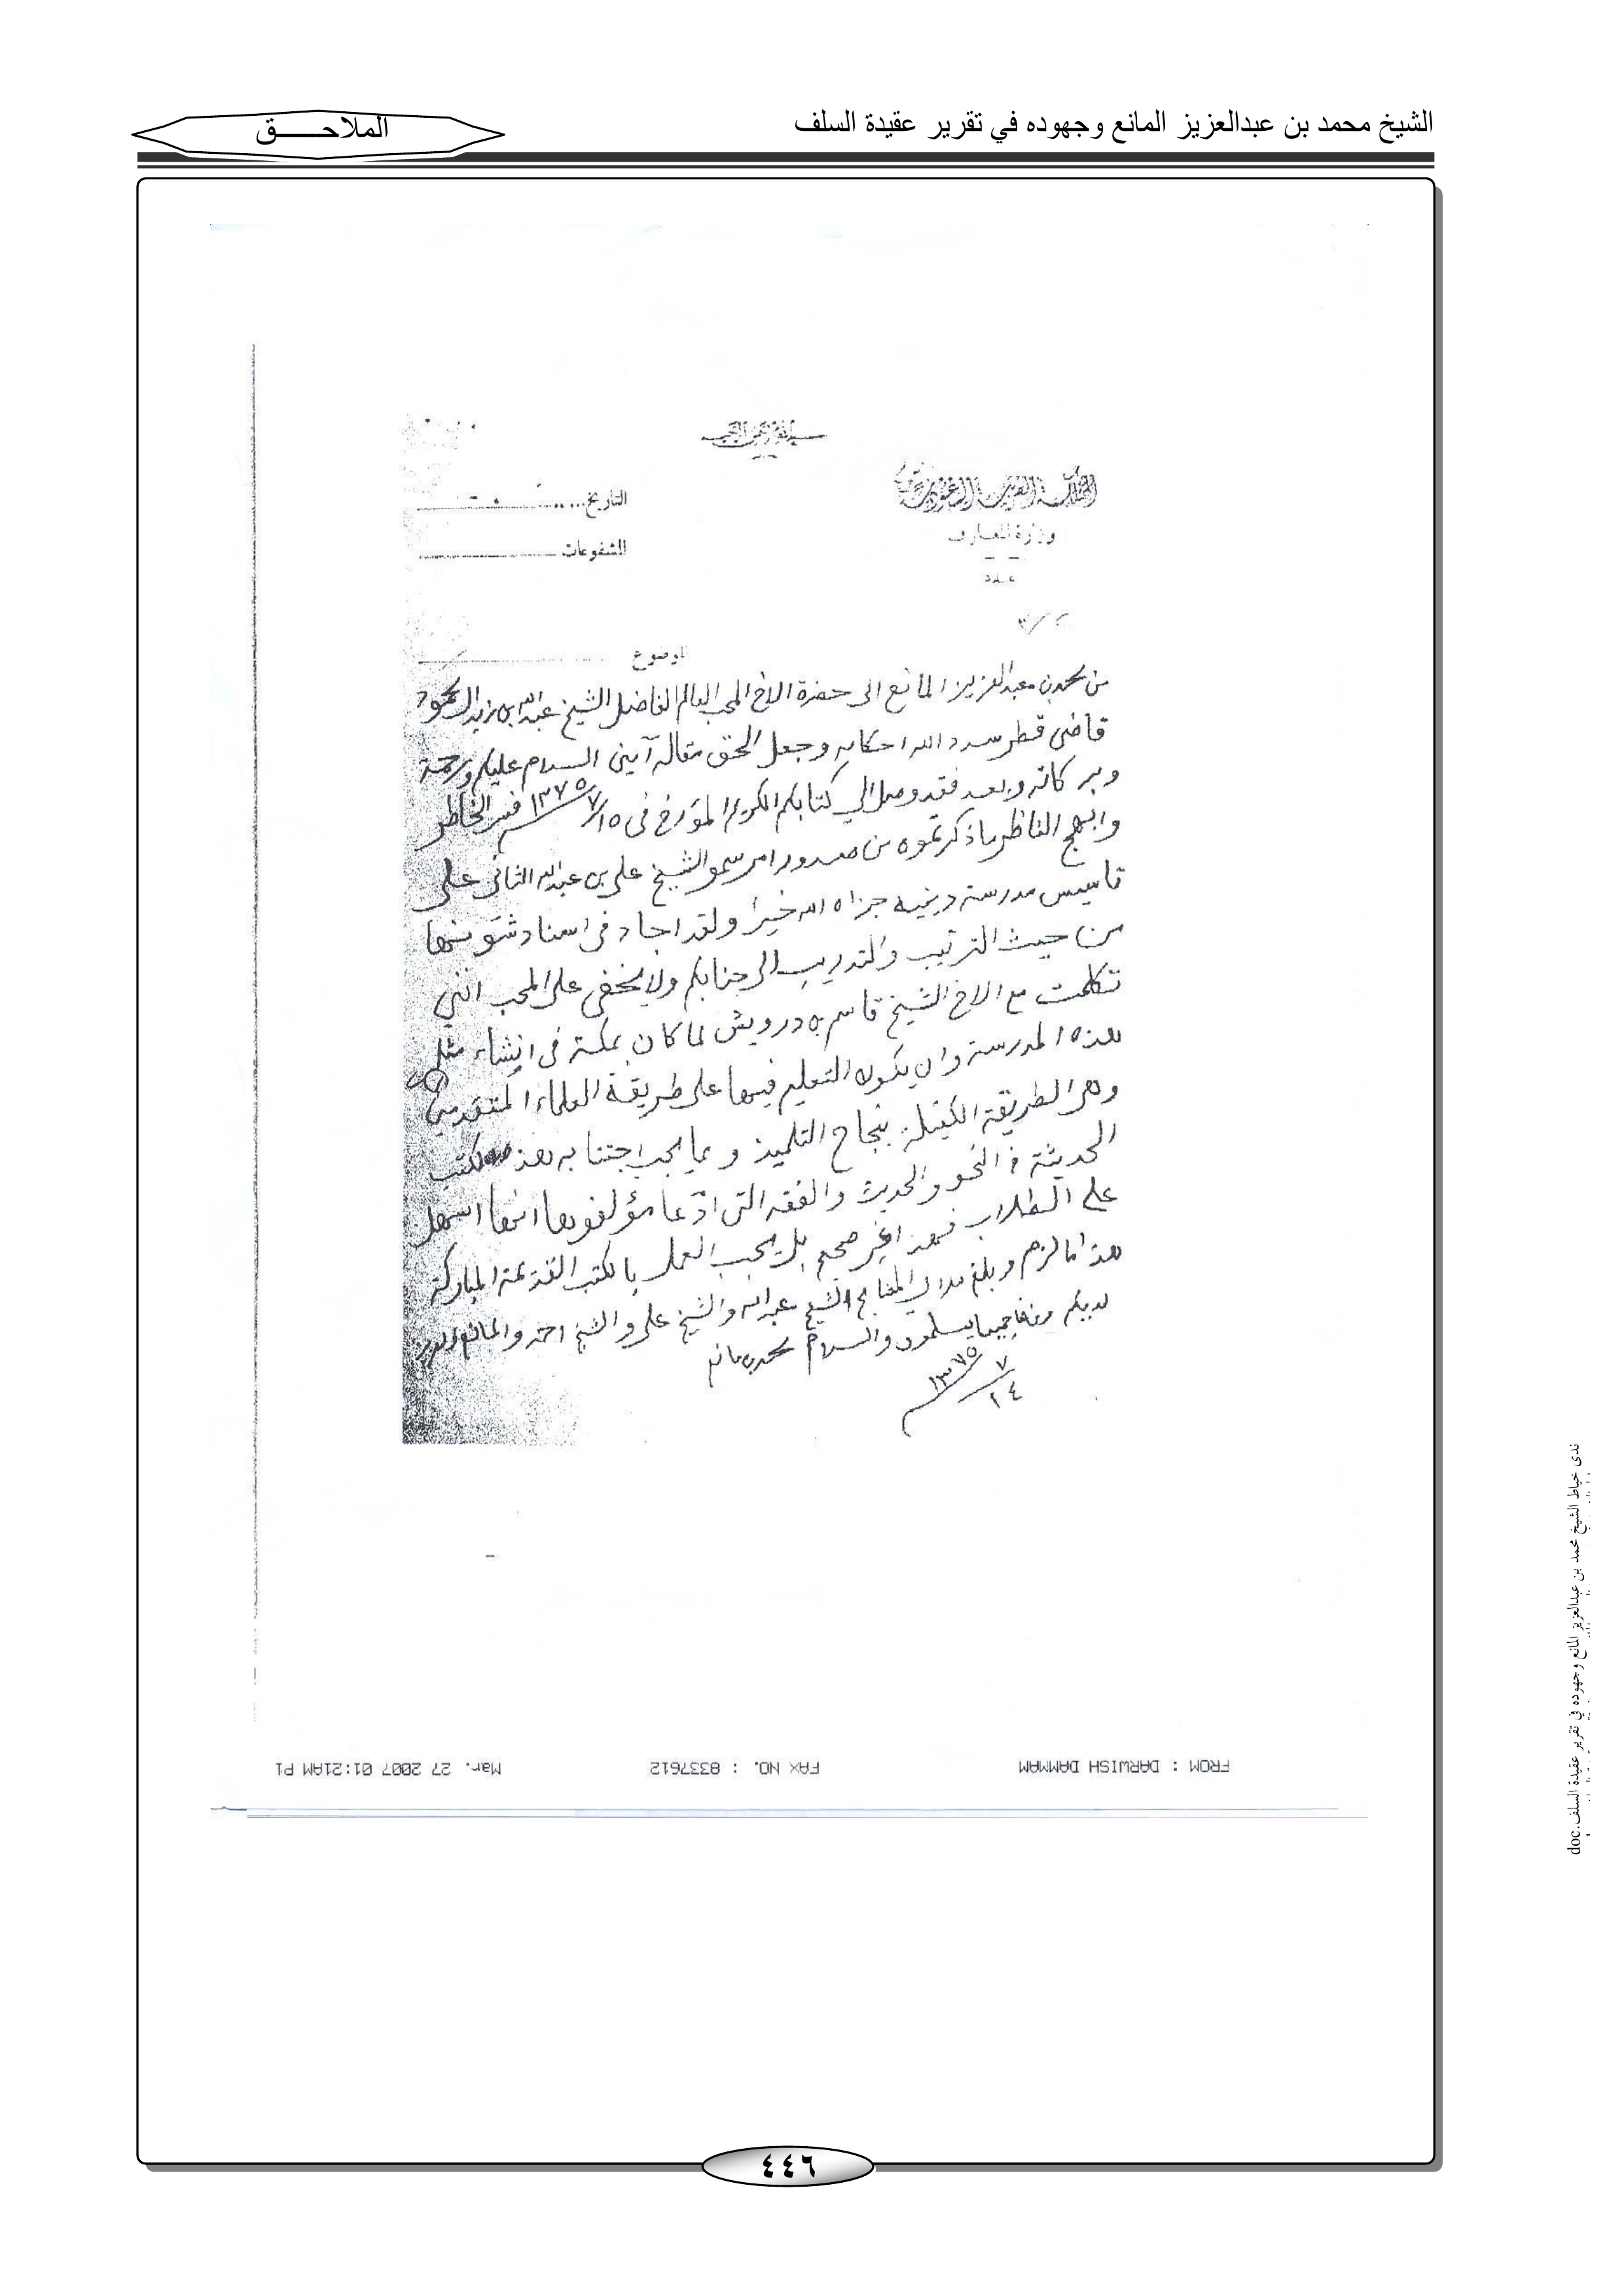 الشيخ محمد بن عبدالعزيز المانع وجهوده في تقرير عقيدة السلف
الملاحـــــق
بسم الله الرحمن الرحيم
المملكة العربية السعودية
وزارة المعارف
عدد
التاريخ
المشفوعات
الموضوع
من محمد بن عبدالعزيز المانع الى حضرة الاخ المحب العالم الفاضل الشيخ عبدالله بن زيد المحمود
قاضي قطر سدد الله احكامه وجعل الحق مقاله آمين السلام عليكم ورحمة
وبركاته وبعد فقد وصل الي كتابكم الكريم المؤرخ في ١٥/٧/١٣٧٥ فسر الخاطر
وابهج الناظر ما ذكرتموه من صدور امر سمو الشيخ علي بن عبدالله الثاني على
تاسيس مدرسة دينية جزاه الله خيرا ولقد اجاد في اسناد شئونها
من حيث الترتيب والتدريب الى جنابكم ولا يخفى على المحب انني
تكلمت مع الاخ الشيخ قاسم بن درويش لما كان بمكة في انشاء مثل
هذه المدرسة وان يكون التعليم فيها على طريقة العلماء المتقدمين
وهي الطريقة الكفيلة بنجاح التلميذ ومما يجب اجتنابه هذه الكتب
الحديثة في النحو والحديث والفقه التي ادعا مؤلفوها انها اسهل
على الطلاب فهذا غير صحيح بل يجب العمل بالكتب القديمة المباركة
هذا ما لزم وبلغ سلامي المشايخ الشيخ عبدالله والشيخ علي والشيخ احمد والمانع
لديكم ومنا جميعا يسلمون والسلام محمد بن مانع
١٤/٧/١٣٧٥
FROM : DARWISH DAMMAM FAX NO. : 8337612 Mar. 27 2007 01:21AM P1
٤٤٦
ندى خياط الشيخ محمد بن عبدالعزيز المانع وجهوده في تقرير عقيدة السلف.doc